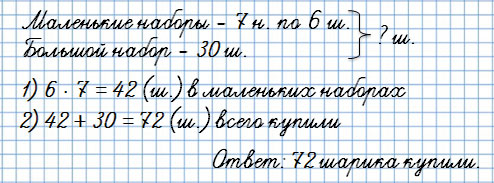 Маленькие наборы – 7 н. по 6 ш.
Большой набор – 30 ш.
? ш.
1) 6 · 7 = 42 (ш.) в маленьких наборах
2) 42 + 30 = 72 (ш.) всего купили
Ответ: 72 шарика купили.